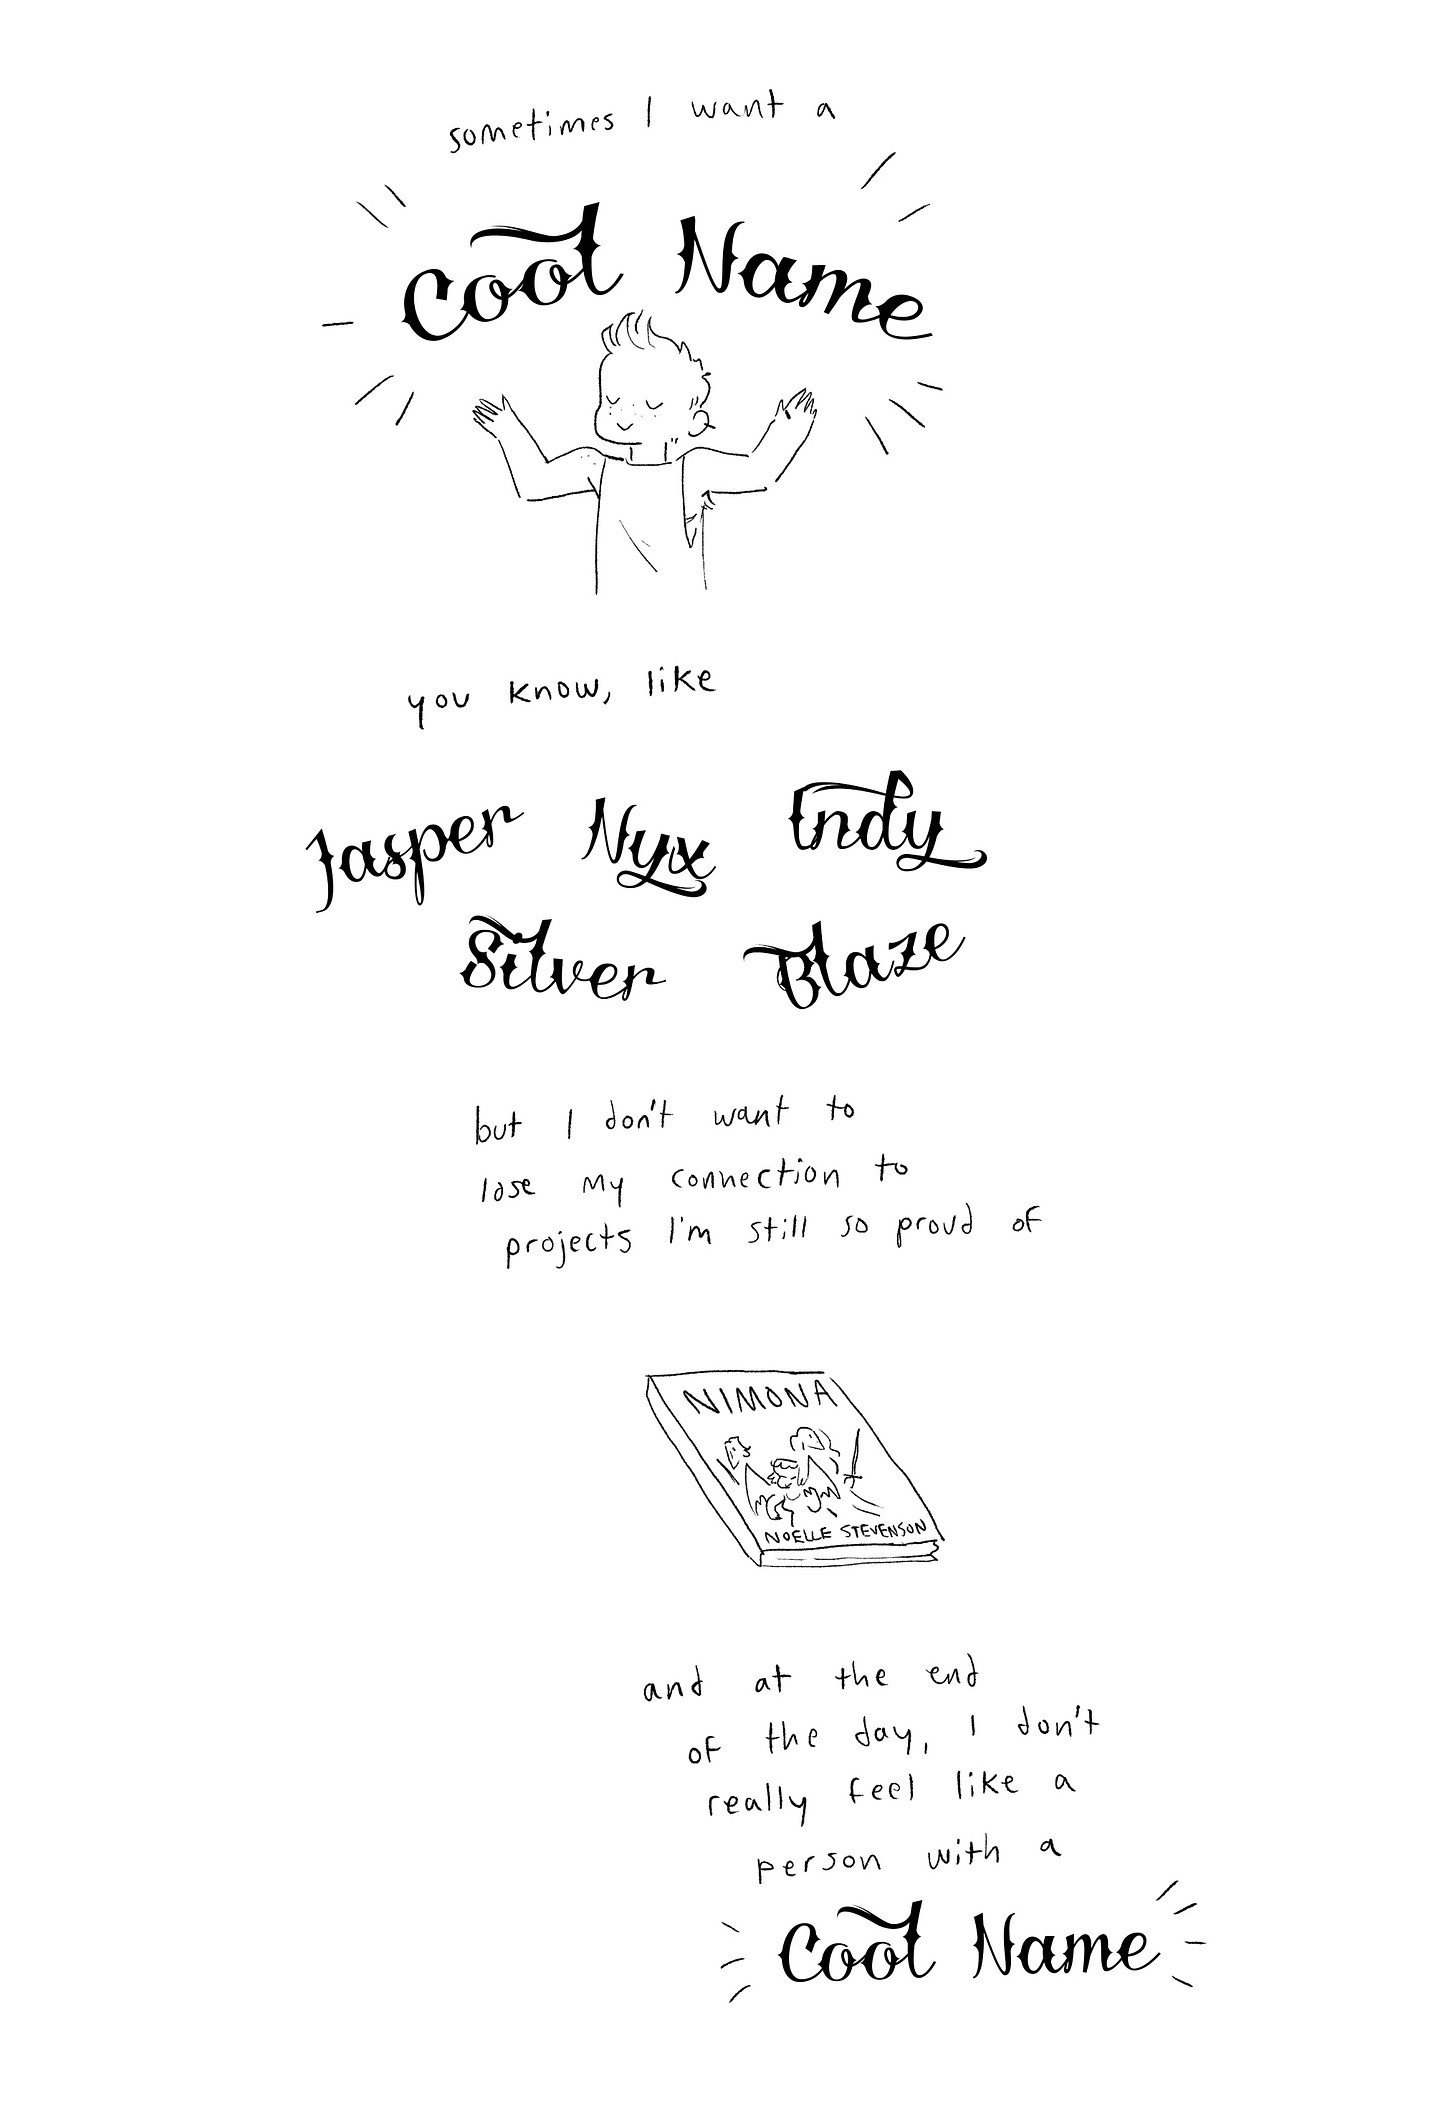 sometimes I want a
Cool Name
you know, like
Jasper Nyx Indy
Silver Blaze
but I don't want to
lose my connection to
projects I'm still so proud of
NIMONA
NOELLE STEVENSON
and at the end
of the day, I don't
really feel like a
person with a
Cool Name